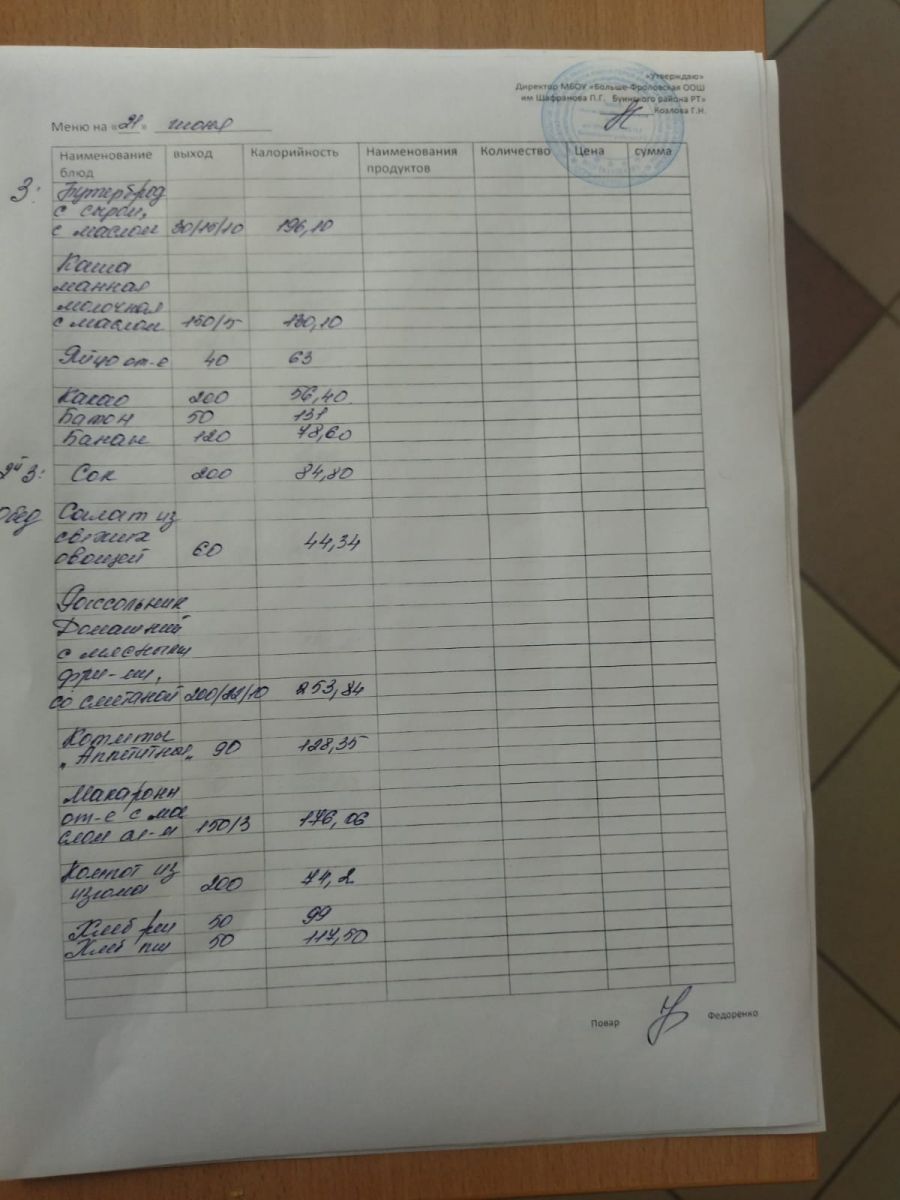 «Утверждаю»
Директор МБОУ «Больше-Фроловская ООШ
им Шафранова П.Г. Буинского района РТ»
Козлова Г.Н.
Меню на «21» июня
Наименование блюд выход Калорийность Наименования продуктов Количество Цена сумма
З: Бутерброд
с сыром,
с маслом 30/10/10 196,10
Каша
манная
молочная
с маслом 150/5 130,10
Яйцо от-е 40 63
Какао 200 56,40
Батон 50 131
Банан 120 78,60
2й З: Сок 200 84,80
Обед Салат из
свежих
овощей 60 44,34
Рассольник
Домашний
с мясными
фри-ми,
со сметаной 200/22/10 253,84
Котлеты
"Аппетитные" 90 128,35
Макароны
от-е с ма
слом сл-м 150/3 176,06
Компот из
изюма 200 74,2
Хлеб рж 50 99
Хлеб пш 50 117,50
Повар Федоренко